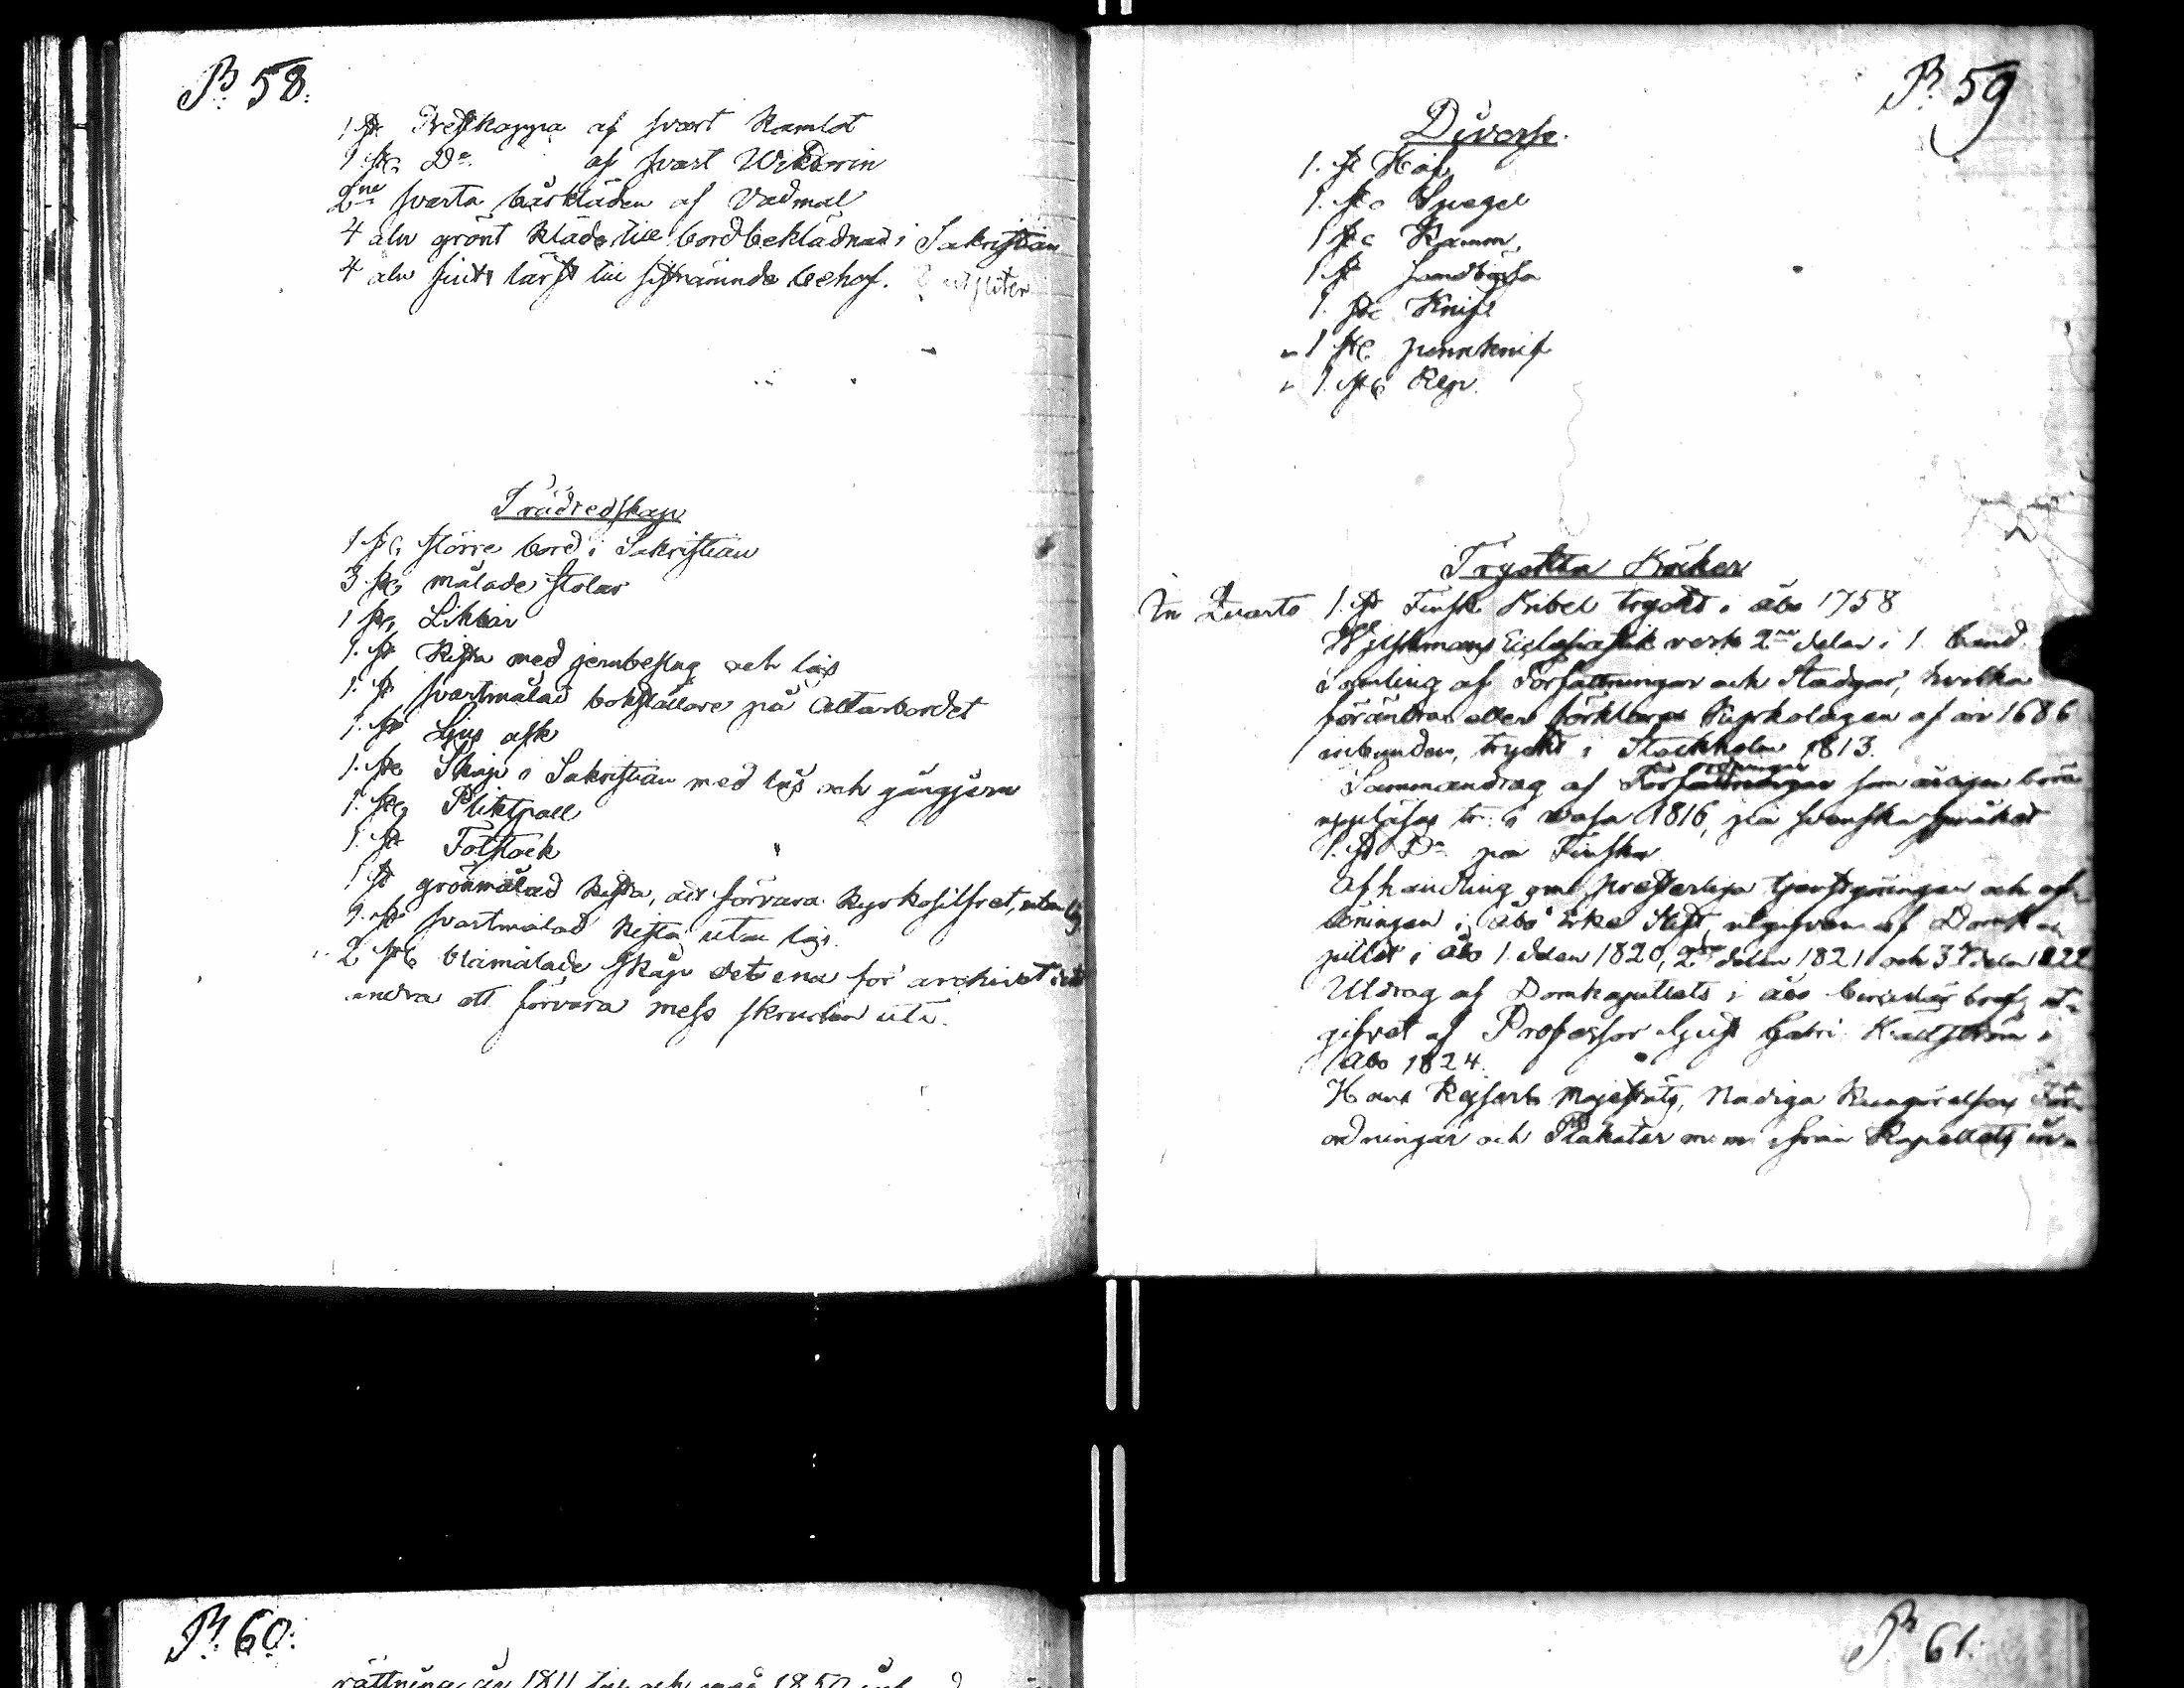 P. 58.
1 st. Prestkappa af svart Kamlot
1 st. Do af svart
2ne svarta bårkläden af vadmal
4 aln grönt kläde till bordbeklädnad i Sakristian
4 aln fint lärft till sistnämnde behof. utsliten
Trädredskap
1 st. större bord i Sakristian
3 st. målade stolar
1 st. Likbår
1. st Kista med jernbeslag och lås
1. st svartmålad bokställare på Altarbordet
1. st Ljus ask
1. st Skåp i Sakristian med lås och gångjern
1. st. Pliktpall
1. st Fotstock
1 st grönmålad kista, att förvara Kyrkosilfret, utan lås
1. st svartmålad kista utan lås.
2 st blåmålade skåp det ena för archivet det
andra att förvara mess skruden uti.
P. 59
Diverse.
1. st Håf
1. st Spegel
1 st Kamm
1 st Sandbössa
1. st Knif
1 st pennknif
1. st Rep.
Tryckta Böcker
In Quarto 1. st Finsk Bibel tryckt i Åbo 1758
Eclesiastik verk 2ne delar i 1. band.
Samling af Författningar och Stadgar, hvilka
förändra eller förklara Kyrkolagen af år 1686
inbunden, tryckt i Stockholm 1813.
Sammandrag af Författningar som årligen böra
uppläsas tr. i Wasa 1816, på svenska språket
1. st Do på Finska
Afhandling om presterliga tjenstgöringen och af-
löningen i Åbo Erke Stift, utgifven af Domka
pitlet i Åbo 1. delen 1820, 2dra delen 1821 och 3 delen 1822
Utdrag af Domkapitlets i Åbo bref, ut-
gifvet af Professor Gust Gabr. Hällström i
Åbo 1824.
Hans Kejserl. Majestäts, Nådiga Kungörelser, För-
ordningar och Plakater m. m. ifrån Kapellets in-
P. 60.
rättning år 1811 till och med 1850
P. 61.